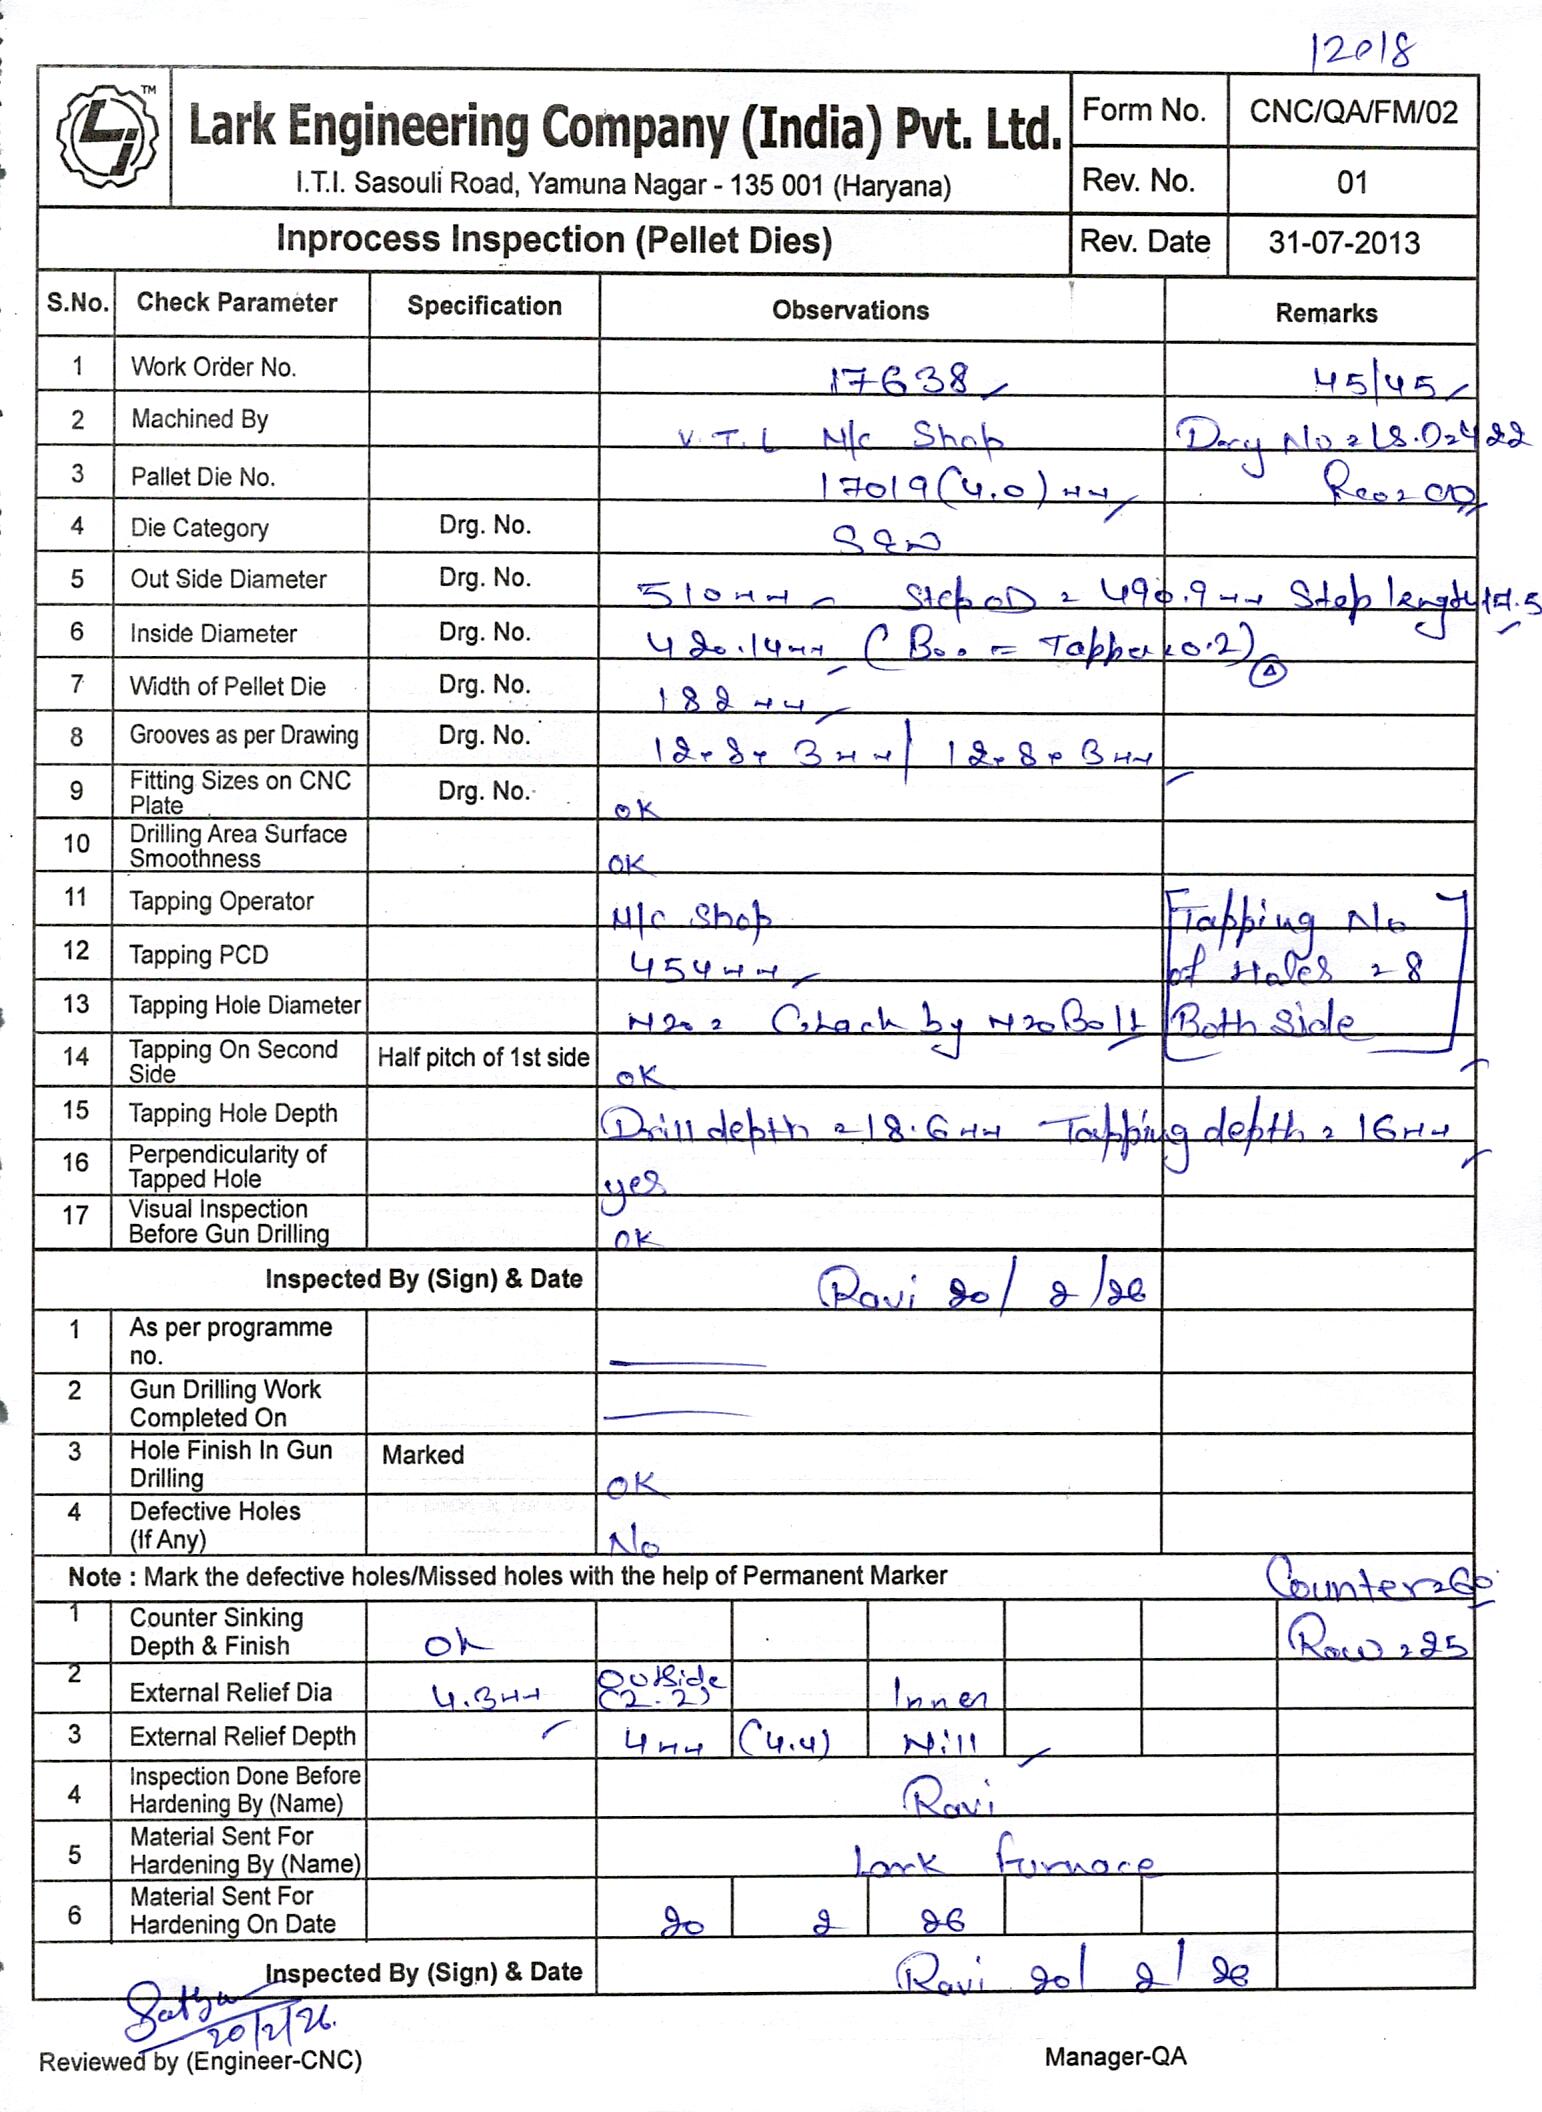 12018
TM
Lark Engineering Company (India) Pvt. Ltd.
I.T.I. Sasouli Road, Yamuna Nagar - 135 001 (Haryana)
Form No. CNC/QA/FM/02
Rev. No. 01
Inprocess Inspection (Pellet Dies) Rev. Date 31-07-2013
S.No. Check Parameter Specification Observations Remarks
1 Work Order No. 17638 45/45
2 Machined By V.T.L M/c Shop
3 Pallet Die No. 17019 (4.0) mm
4 Die Category Drg. No.
5 Out Side Diameter Drg. No. 510mm Step OD = 490.9mm Step length
6 Inside Diameter Drg. No. 420.14mm
7 Width of Pellet Die Drg. No. 182 mm
8 Grooves as per Drawing Drg. No. 12×8×3mm / 12×8×3mm
9 Fitting Sizes on CNC Plate Drg. No. OK
10 Drilling Area Surface Smoothness OK
11 Tapping Operator M/c Shop Tapping No
12 Tapping PCD 454mm of Holes = 8
13 Tapping Hole Diameter M20 = Check by M20 Bolt Both Side
14 Tapping On Second Side Half pitch of 1st side OK
15 Tapping Hole Depth Drill depth = 18.6mm Tapping depth = 16mm
16 Perpendicularity of Tapped Hole yes
17 Visual Inspection Before Gun Drilling OK
Inspected By (Sign) & Date Ravi 20/2/26
1 As per programme no.
2 Gun Drilling Work Completed On
3 Hole Finish In Gun Drilling Marked OK
4 Defective Holes (If Any) No
Note : Mark the defective holes/Missed holes with the help of Permanent Marker Counter=60°
1 Counter Sinking Depth & Finish OK Row = 25
2 External Relief Dia 4.3mm Outside (2.2) Inner
3 External Relief Depth 4mm (4.4) Nill
4 Inspection Done Before Hardening By (Name) Ravi
5 Material Sent For Hardening By (Name) Lark Furnace
6 Material Sent For Hardening On Date 20 2 26
Inspected By (Sign) & Date Ravi 20/2/26
Satya
20/2/26.
Reviewed by (Engineer-CNC) Manager-QA